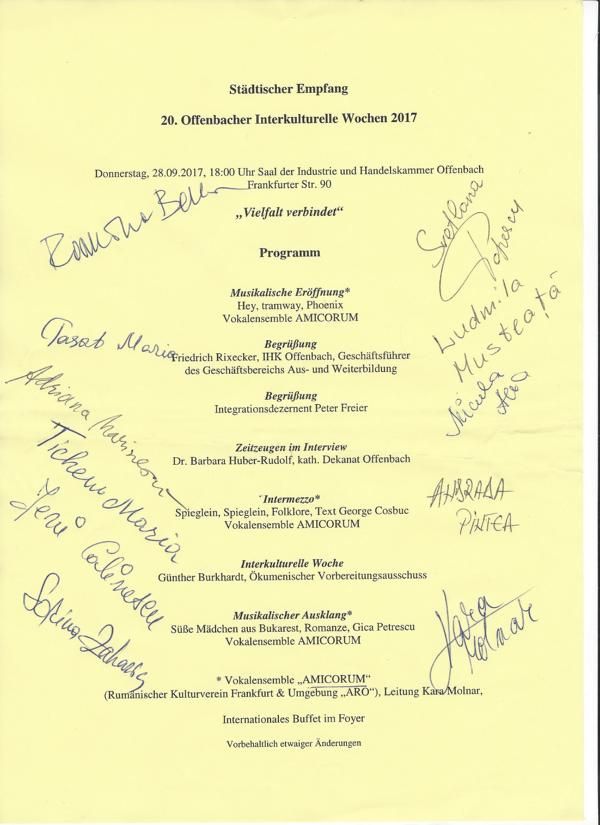 Städtischer Empfang
20. Offenbacher Interkulturelle Wochen 2017
Donnerstag, 28.09.2017, 18:00 Uhr Saal der Industrie und Handelskammer Offenbach
Frankfurter Str. 90
„Vielfalt verbindet“
Programm
Musikalische Eröffnung*
Hey, tramway, Phoenix
Vokalensemble AMICORUM
Begrüßung
Friedrich Rixecker, IHK Offenbach, Geschäftsführer
des Geschäftsbereichs Aus- und Weiterbildung
Begrüßung
Integrationsdezernent Peter Freier
Zeitzeugen im Interview
Dr. Barbara Huber-Rudolf, kath. Dekanat Offenbach
Intermezzo*
Spieglein, Spieglein, Folklore, Text George Cosbuc
Vokalensemble AMICORUM
Interkulturelle Woche
Günther Burkhardt, Ökumenischer Vorbereitungsausschuss
Musikalischer Ausklang*
Süße Mädchen aus Bukarest, Romanze, Gica Petrescu
Vokalensemble AMICORUM
* Vokalensemble „AMICORUM“
(Rumänischer Kulturverein Frankfurt & Umgebung „ARO“), Leitung Kara Molnar,
Internationales Buffet im Foyer
Vorbehaltlich etwaiger Änderungen
Maria
Adriana Marinescu
Maria
Jeni Călinescu
Sorina
Svetlana
Popescu
Ludmila
Musteață
Nicula
PINTEA
Kara
Molnar